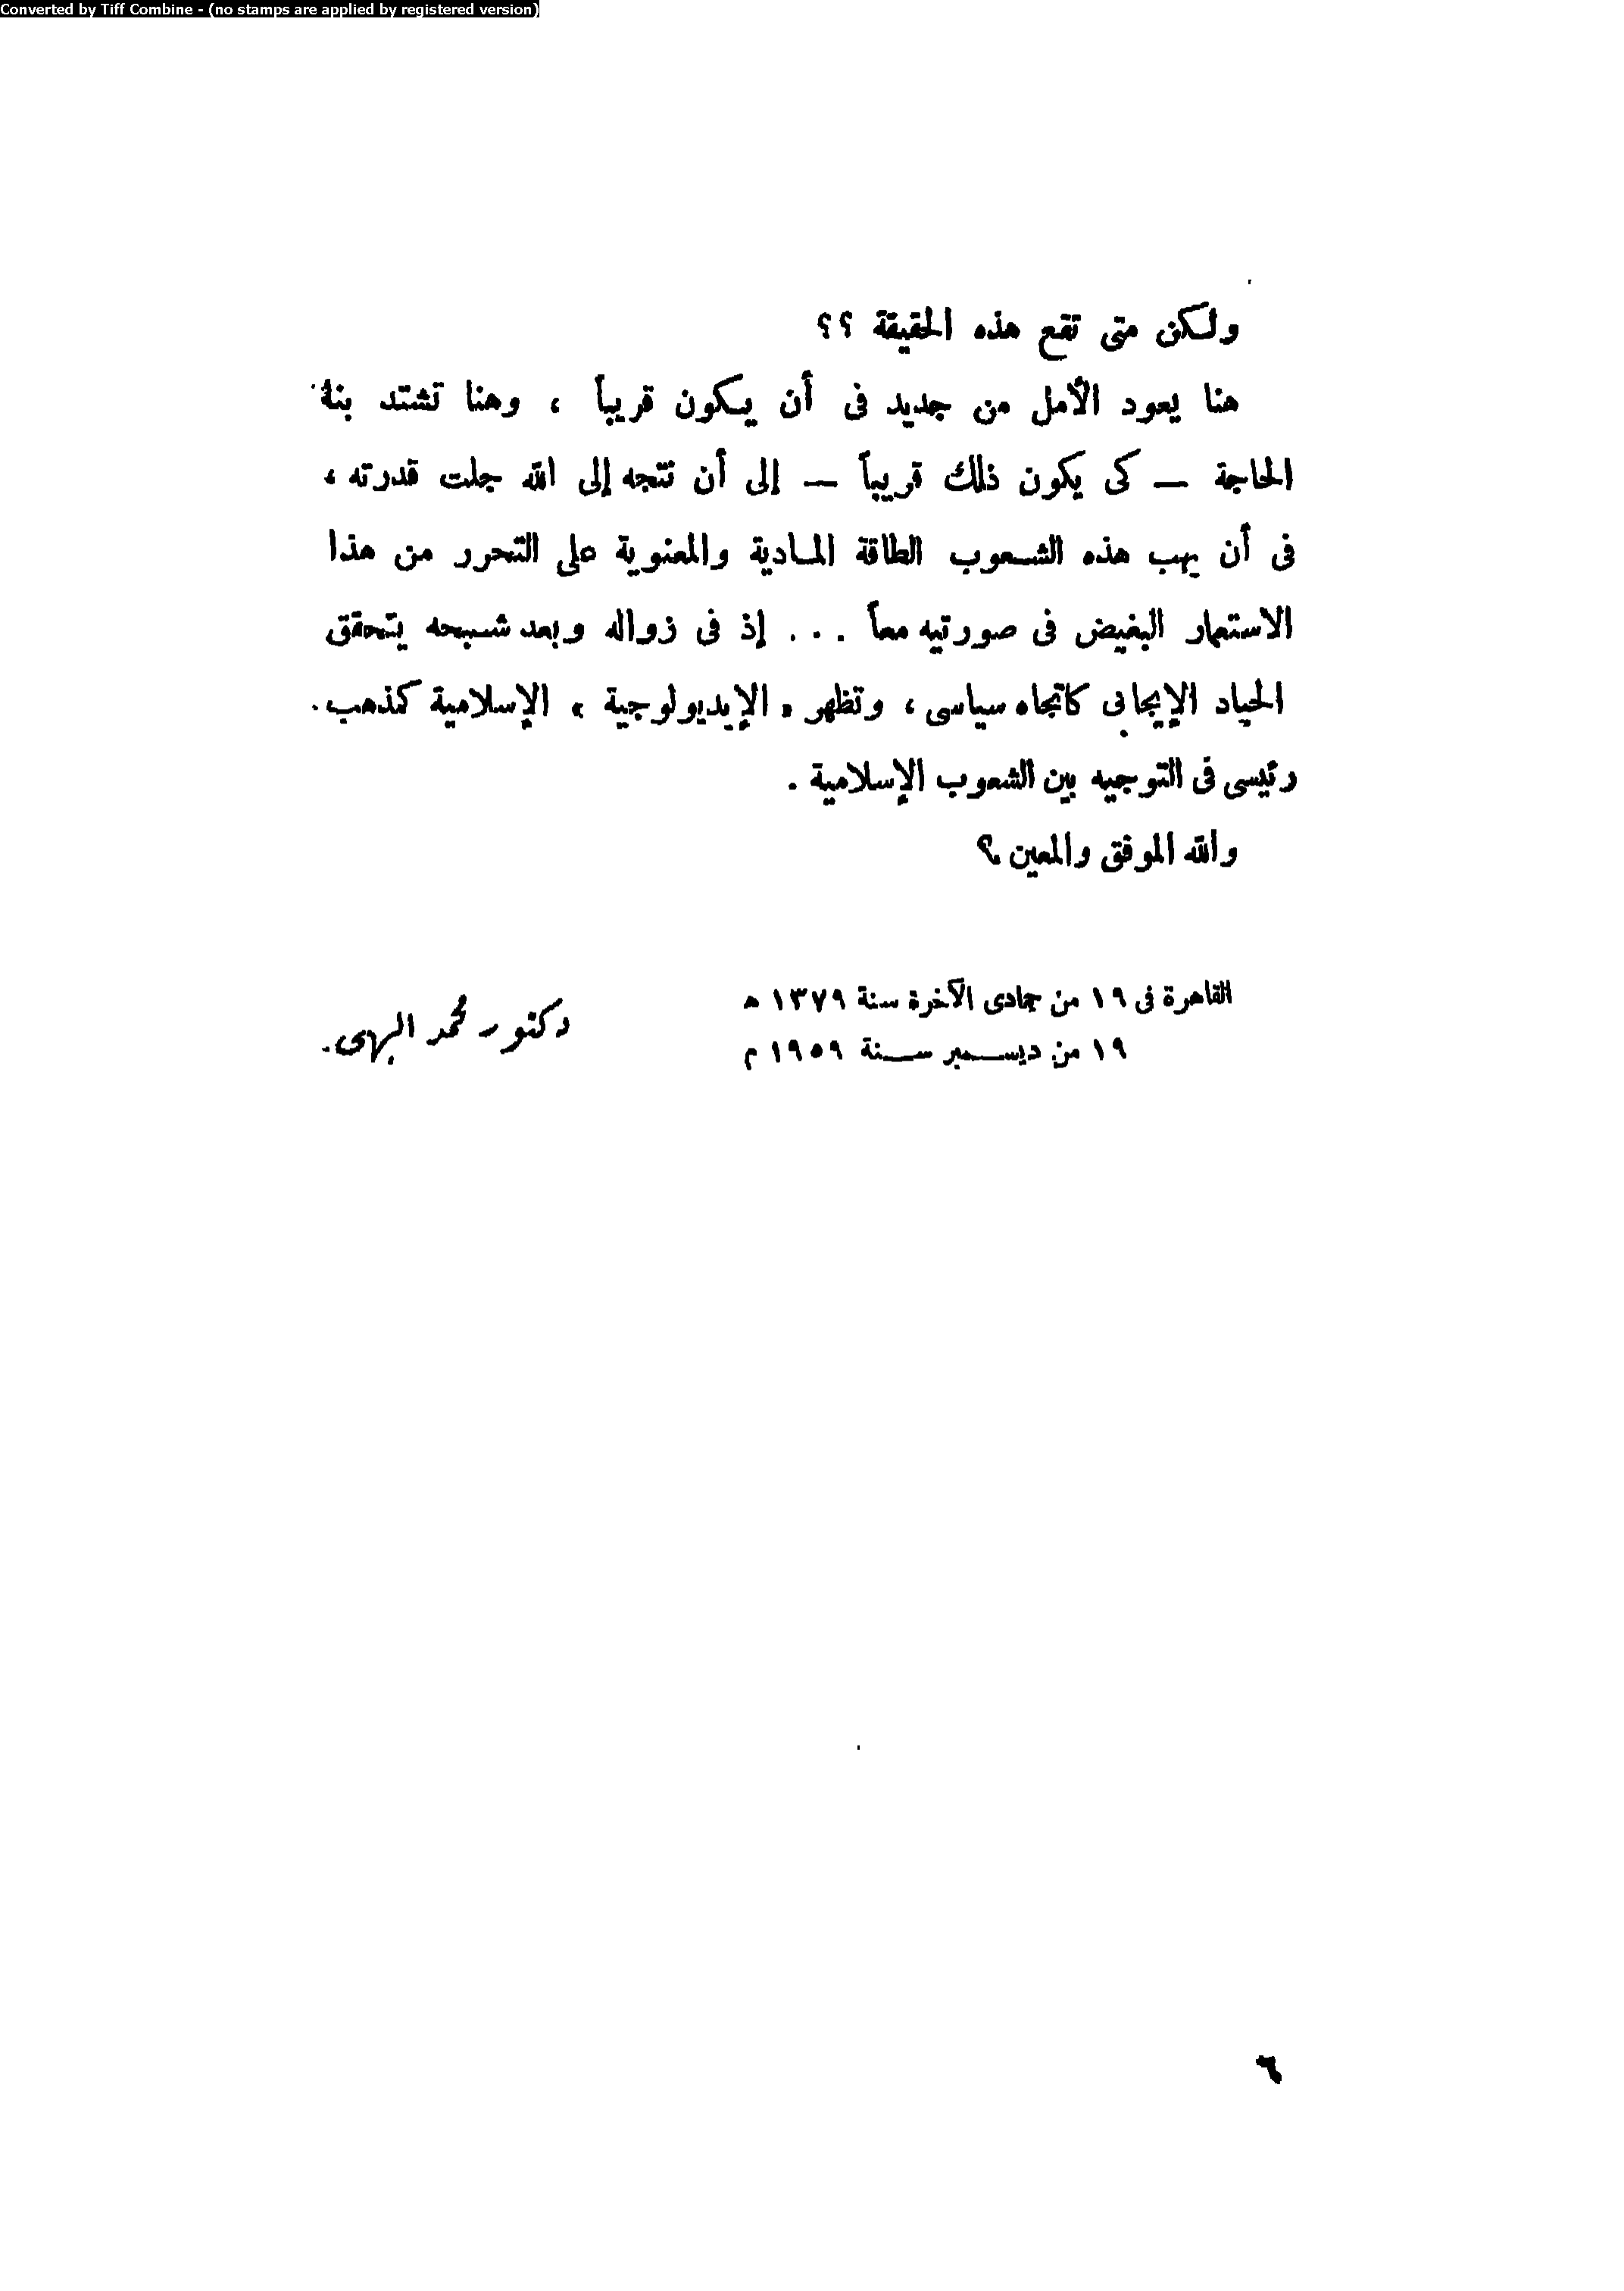 Converted by Tiff Combine - (no stamps are applied by registered version)
ولكن متى تقع هذه الحقيقة ؟؟
هنا يعود الأمل من جديد فى أن يكون قريباً ، وهنا تشتد بنا
الحاجة — كى يكون ذلك قريباً — إلى أن نتجه إلى الله جلت قدرته ،
فى أن يهب هذه الشعوب الطاقة المادية والمعنوية على التحرر من هذا
الاستعمار البغيض فى صورتيه معاً . . . إذ فى زواله وبعد شبحه يتحقق
الحياد الإيجابى كاتجاه سياسى ، وتظهر « الإيديولوجية » الإسلامية كمذهب
رئيسى فى التوجيه بين الشعوب الإسلامية .
والله الموفق والمعين ؟
القاهرة فى ١٩ من جمادى الآخرة سنة ١٣٧٩ ه
١٩ من ديسمبر سنة ١٩٥٩ م
دكتور محمد البهى
٦